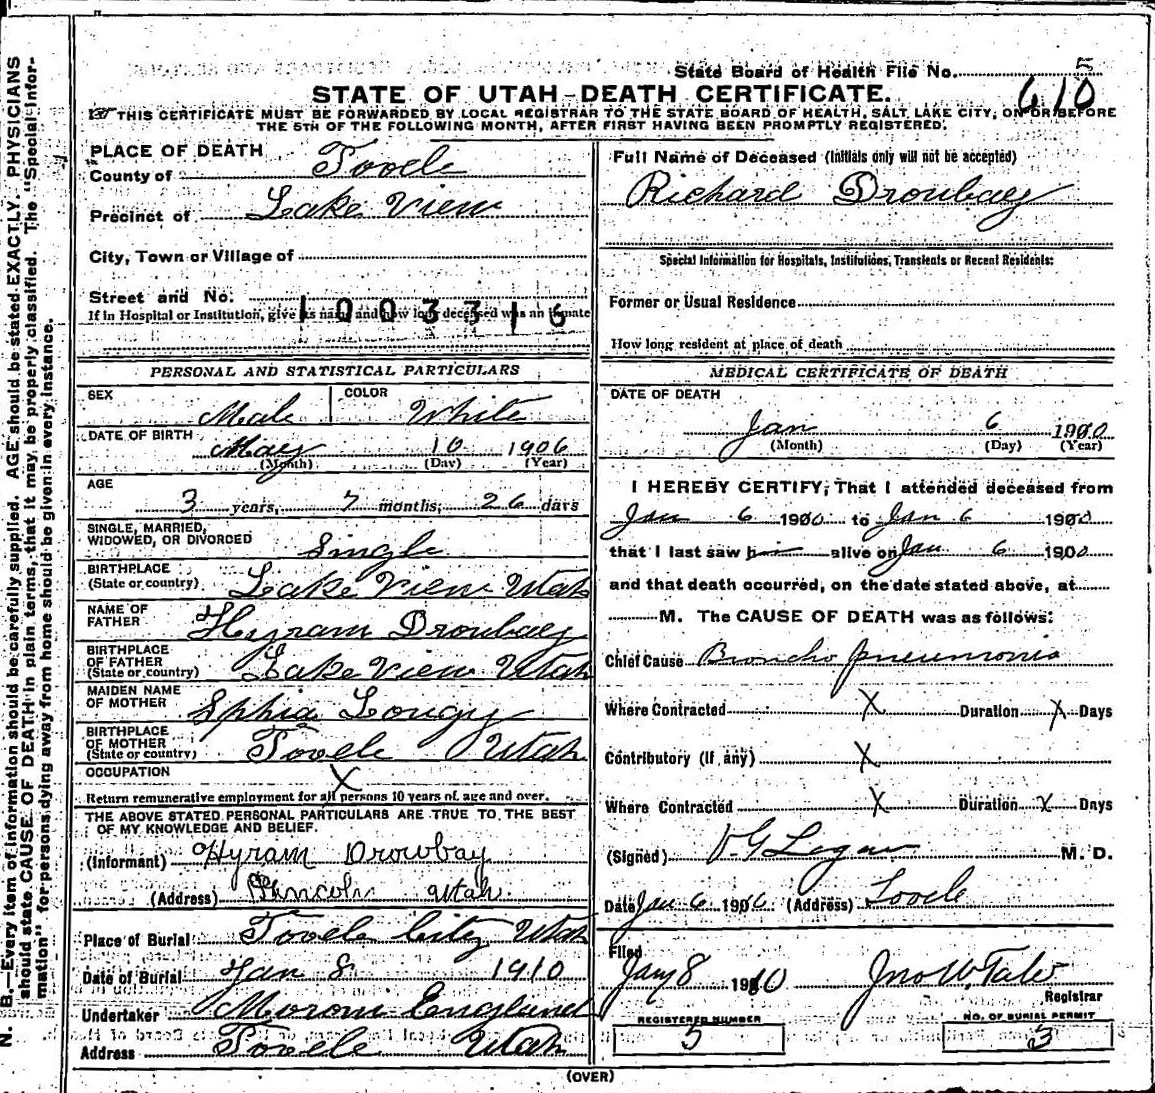 State Board of Health File No. 5
610
STATE OF UTAH—DEATH CERTIFICATE.
THIS CERTIFICATE MUST BE FORWARDED BY LOCAL REGISTRAR TO THE STATE BOARD OF HEALTH, SALT LAKE CITY, ON OR BEFORE
THE 5TH OF THE FOLLOWING MONTH, AFTER FIRST HAVING BEEN PROMPTLY REGISTERED.
PLACE OF DEATH
County of Tooele
Precinct of Lake View
City, Town or Village of
Street and No.
1003316
If in Hospital or Institution, give its name and how long deceased was an inmate
PERSONAL AND STATISTICAL PARTICULARS
SEX Male COLOR White
DATE OF BIRTH May 10 1906
(Month) (Day) (Year)
AGE
3 years, 7 months, 26 days
SINGLE, MARRIED,
WIDOWED, OR DIVORCED Single
BIRTHPLACE
(State or country) Lake View Utah
NAME OF
FATHER Hyram Droubay
BIRTHPLACE
OF FATHER
(State or country) Lake View Utah
MAIDEN NAME
OF MOTHER Sphia
BIRTHPLACE
OF MOTHER
(State or country) Tooele Utah
OCCUPATION X
Return remunerative employment for all persons 10 years of age and over.
THE ABOVE STATED PERSONAL PARTICULARS ARE TRUE TO THE BEST
OF MY KNOWLEDGE AND BELIEF.
(Informant) Hyram Drowbay
(Address) Lincoln Utah.
Place of Burial Tooele City Utah
Date of Burial Jan 8 1910
Undertaker Moroni England
Address Tooele Utah
Full Name of Deceased (Initials only will not be accepted)
Richard Droubay
Special Information for Hospitals, Institutions, Transients or Recent Residents:
Former or Usual Residence
How long resident at place of death
MEDICAL CERTIFICATE OF DEATH
DATE OF DEATH
Jan 6 1910
(Month) (Day) (Year)
I HEREBY CERTIFY, That I attended deceased from
Jan 6 1910 to Jan 6 1910
that I last saw him alive on Jan 6 1910
and that death occurred, on the date stated above, at
M. The CAUSE OF DEATH was as follows:
Chief Cause Broncho pneumonia
Where Contracted X Duration X Days
Contributory (if any) X
Where Contracted X Duration X Days
(Signed) M. D.
Date Jan 6 1910 (Address) Tooele
Filed
Jany 8 1910 Jno W. Tate
Registrar
REGISTERED NUMBER
5
NO. OF BURIAL PERMIT
3
(OVER)
N. B.—Every item of information should be carefully supplied. AGE should be stated EXACTLY. PHYSICIANS
should state CAUSE OF DEATH in plain terms, that it may be properly classified. The "Special Infor-
mation" for persons dying away from home should be given in every instance.